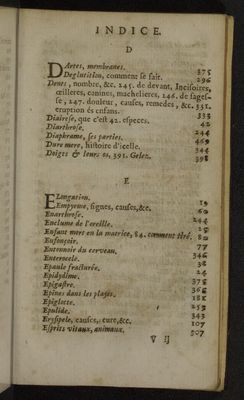 INDICE.
D
DArtes, membranes. 375
Deglutition, comment se fait. 296
Dents, nombre, &c. 245. de devant, Incisoires,
œilleres, canines, machelieres, 246. de sages-
se, 247. douleur, causes, remedes, &c. 351.
eruption és enfans. 333
Diairese, que c'est 42. especes. 42
Diarthrose. 244
Diaphragme, ses parties. 469
Dure mere, histoire d'icelle. 344
Doigts & leurs os, 391. Gelez. 398
E
ELongation. 19
Empyeme, signes, causes, &c. 60
Enarthrose. 244
Enclume de l'oreille. 25
Enfant mort en la matrice, 84. comment tiré. 80
Enfonçoir. 77
Entonnoir du cerveau. 346
Enterocele. 38
Epaule fracturée. 24
Epididyme. 375
Epigastre. 366
Epines dans les playes. 181
Epiglotte. 253
Epulide. 343
Erysipele, causes, cure, &c. 107
Esprits vitaux, animaux. 507
V ij